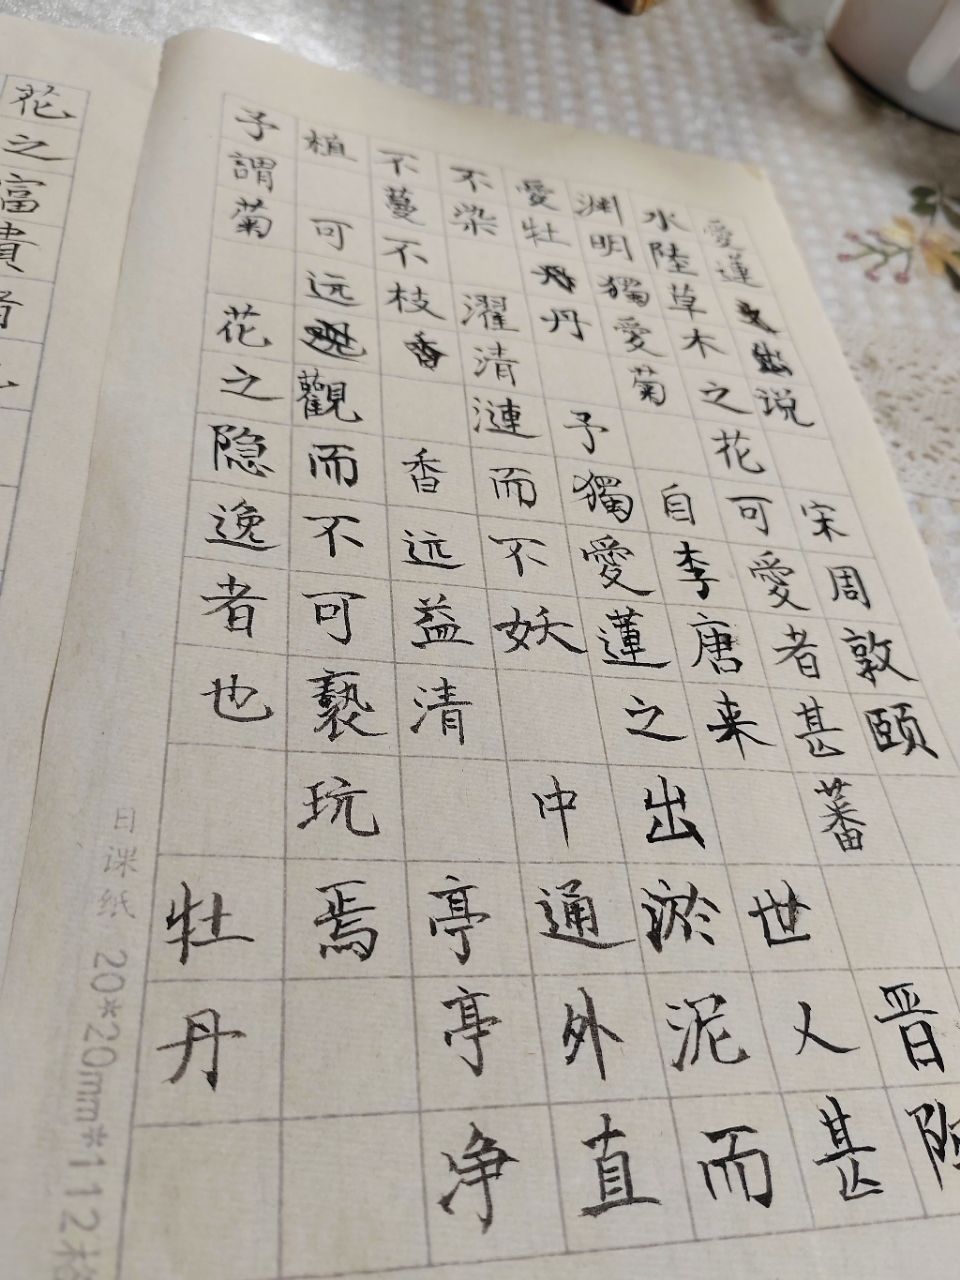 愛蓮说 宋周敦頤
水陸草木之花 可愛者甚蕃 晋
渊明獨愛菊 自李唐来 世人甚
愛牡丹 予獨愛蓮之出淤泥而
不染 濯清漣而不妖 中通外直
不蔓不枝 香远益清 亭亭净
植 可远觀而不可褻玩焉
予謂菊 花之隐逸者也 牡丹
花之富貴者
日课纸 20*20mm*112格